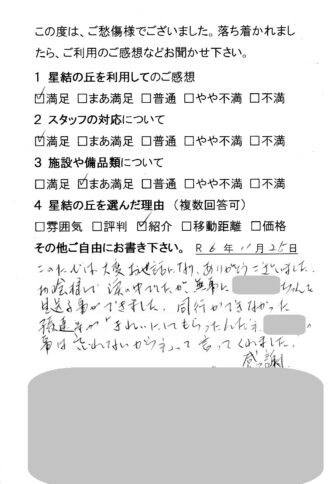 この度は、ご愁傷様でございました。落ち着かれまし
たら、ご利用のご感想などお聞かせ下さい。
1 星結の丘を利用してのご感想
☑満足 □まあ満足 □普通 □やや不満 □不満
2 スタッフの対応について
☑満足 □まあ満足 □普通 □やや不満 □不満
3 施設や備品類について
□満足 ☑まあ満足 □普通 □やや不満 □不満
4 星結の丘を選んだ理由 （複数回答可）
□雰囲気 □評判 ☑紹介 □移動距離 □価格
その他ご自由にお書き下さい。 R6年11月25日
このたびは大変お世話になり、ありがとうございました。
お陰様で 涙の中でしたが、無事に ちゃんを
見送る事ができました。同行ができなかった
孫達が「きれいにしてもらったんだネ の
事は忘れないからネ」って言ってくれました。
感謝!